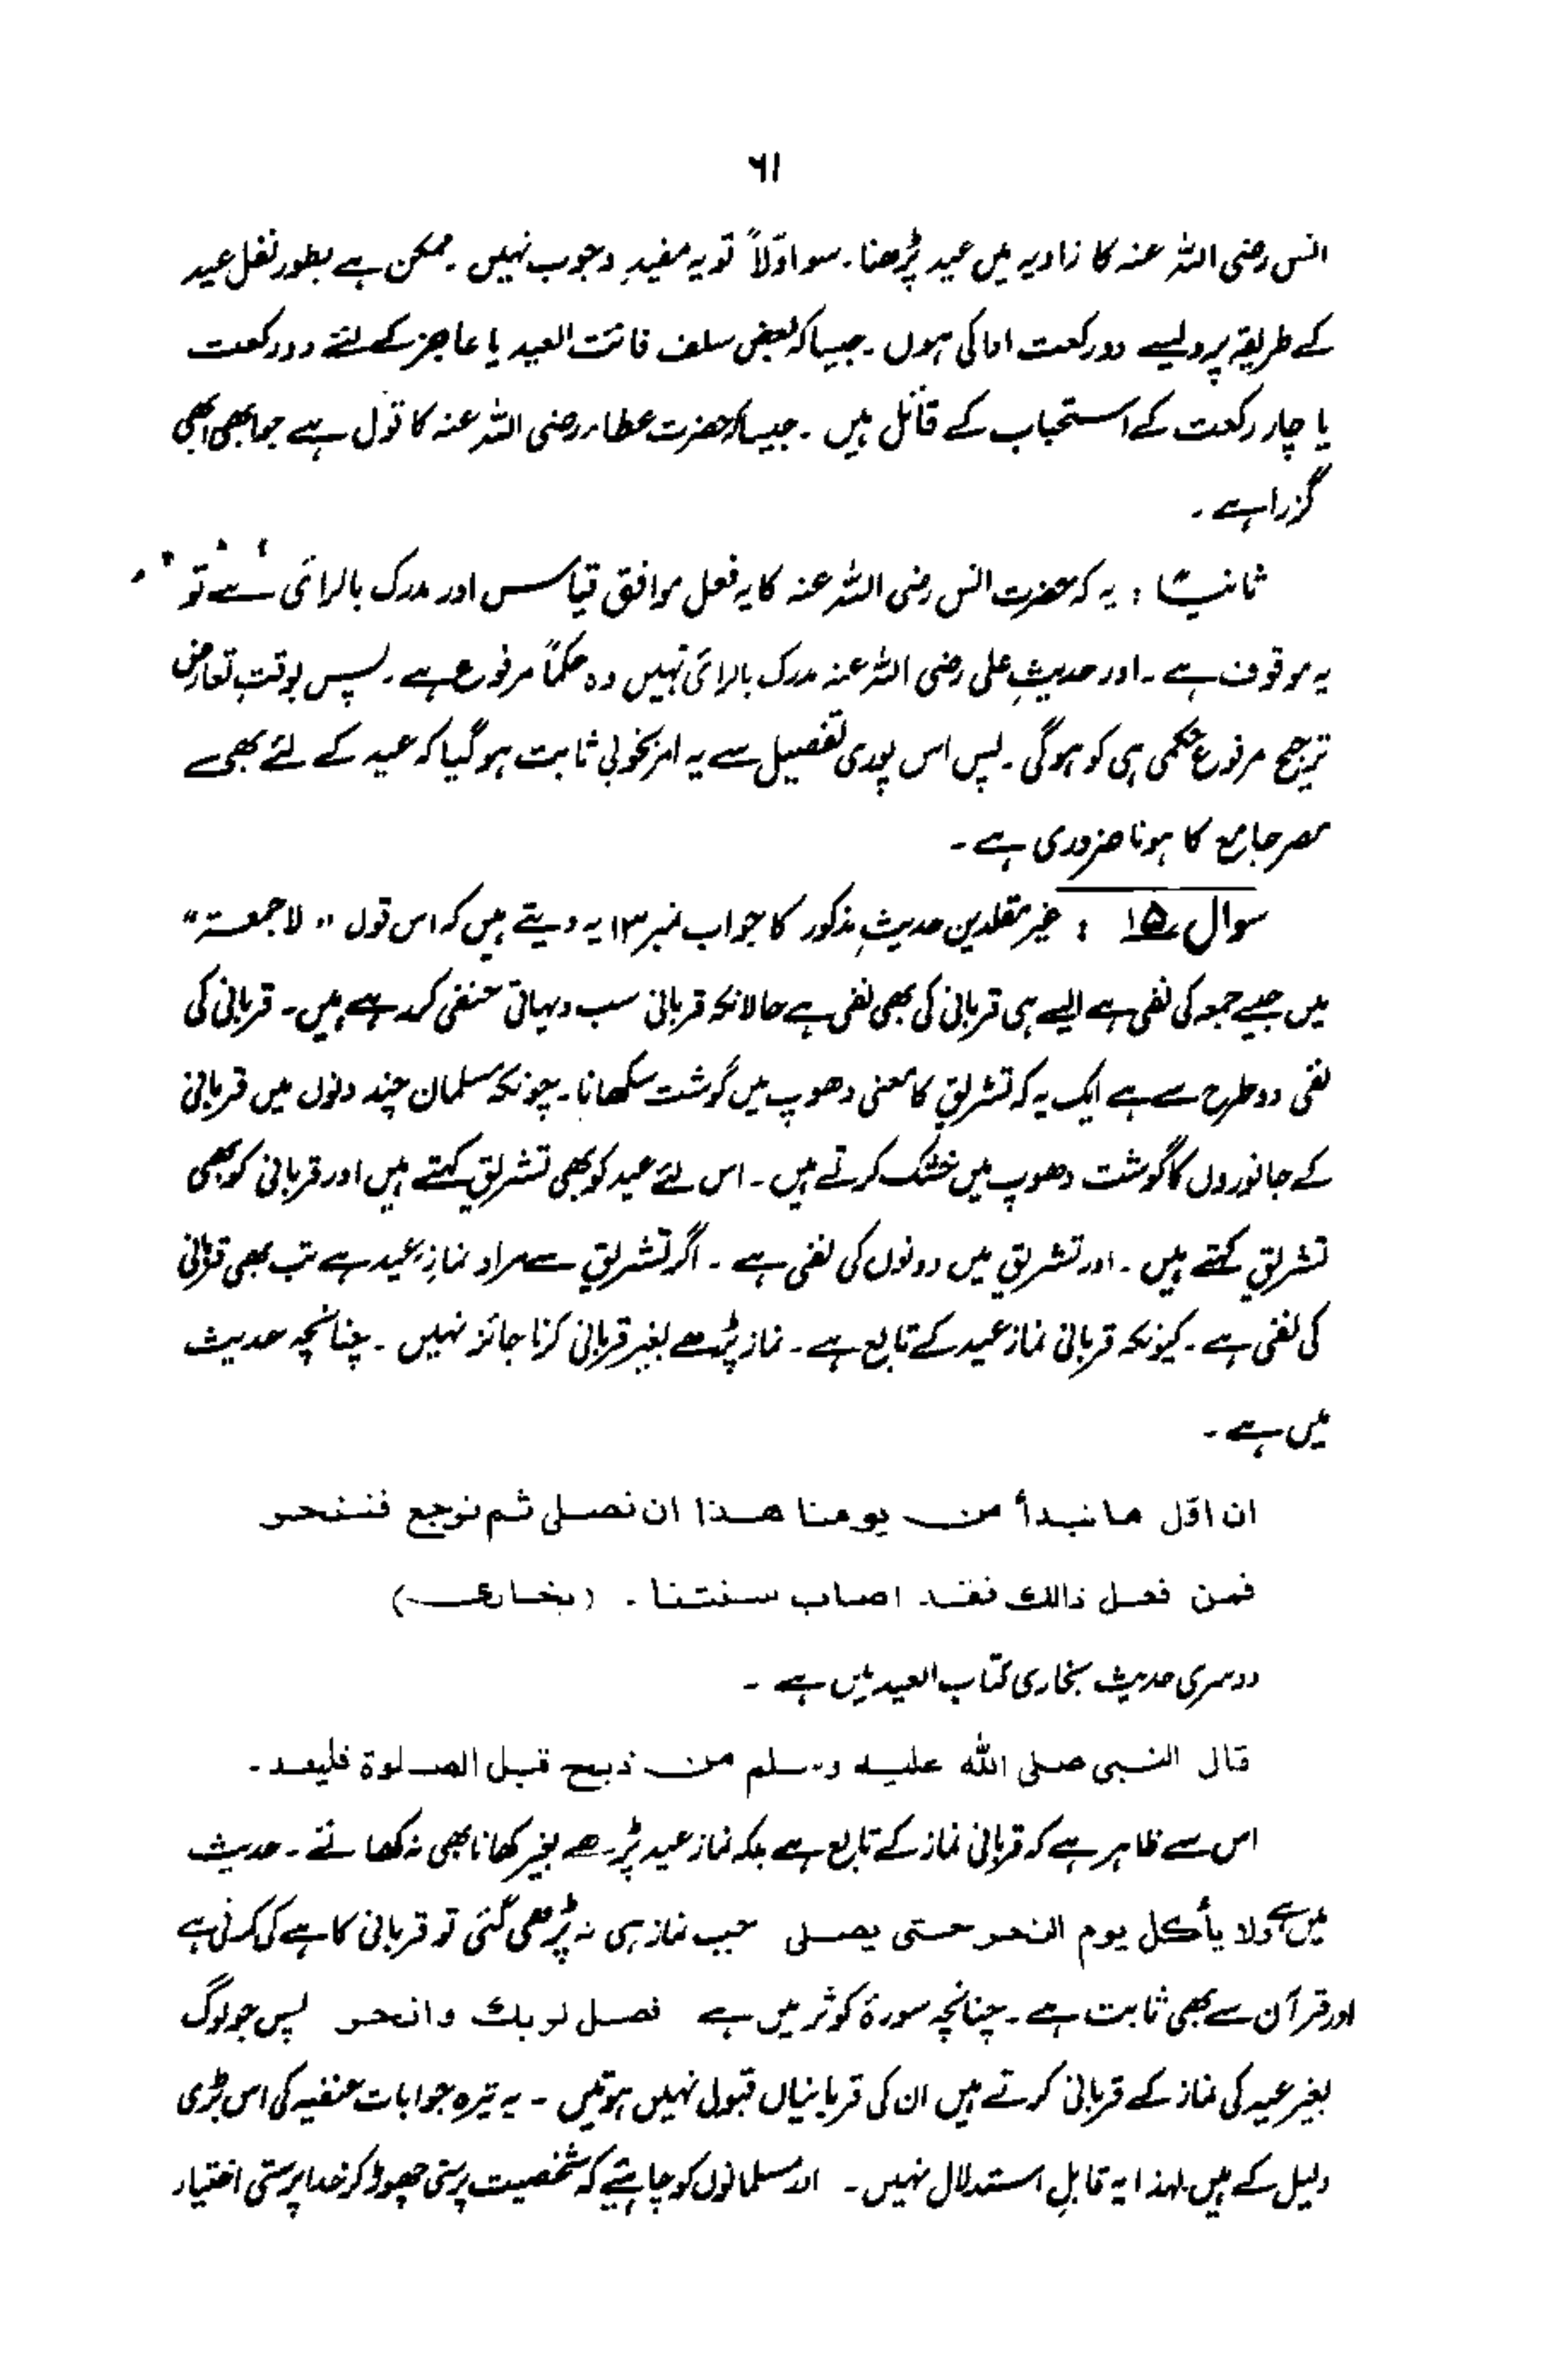 ٦١
انس رضی اللہ عنہ کا زاویہ میں عید پڑھنا۔ سو اوّلاً تو یہ مفیدِ وجوب نہیں۔ ممکن ہے بطور نفل عید
کے طریقہ پر ویسے دو رکعت ادا کی ہوں۔ جیسا کہ بعض سلف فائت العید یا عاجز کے لئے دو رکعت
یا چار رکعت کے استحباب کے قائل ہیں۔ جیسا کہ حضرت عطاء رضی اللہ عنہ کا قول ہے جو ابھی ابھی
گزرا ہے۔
ثانیًا: یہ کہ حضرت انس رضی اللہ عنہ کا یہ فعل موافق قیاس اور مدرک بالرائ ہے تو
یہ موقوف ہے۔ اور حدیثِ علی رضی اللہ عنہ مدرک بالرائ نہیں وہ حکماً مرفوع ہے۔ پس بوقتِ تعارض
ترجیح مرفوع حکمی ہی کو ہوگی۔ پس اس پوری تفصیل سے یہ امر بخوبی ثابت ہوگیا کہ عید کے لئے بھی
مصر جامع کا ہونا ضروری ہے۔
سوال ۱۵: غیر مقلدین حدیثِ مذکور کا جواب نمبر ۱۳ یہ دیتے ہیں کہ اس قول "لا جمعۃ"
میں جیسے جمعہ کی نفی ہے ایسے ہی قربانی کی بھی نفی ہے حالانکہ قربانی سب دیہاتی حنفی کر رہے ہیں۔ قربانی کی
نفی دو طرح سے ہے ایک یہ کہ تشریق کا معنی دھوپ میں گوشت سکھانا۔ چونکہ مسلمان چند دنوں میں قربانی
کے جانوروں کا گوشت دھوپ میں خشک کرتے ہیں۔ اس لئے عید کو بھی تشریق کہتے ہیں اور قربانی کو بھی
تشریق کہتے ہیں۔ اور تشریق میں دونوں کی نفی ہے۔ اگر تشریق سے مراد نمازِ عید ہے تب بھی قربانی
کی نفی ہے۔ کیونکہ قربانی نماز عید کے تابع ہے۔ نماز پڑھے بغیر قربانی کرنا جائز نہیں۔ چنانچہ حدیث
میں ہے۔
ان اوّل ما نبدأ من یومنا هذا ان نصلی ثم نرجع فننحر
فمن فعل ذالك فقد اصاب سنتنا۔ (بخاری)
دوسری حدیث بخاری کتاب العید میں ہے۔
قال النبی صلی اللہ علیہ وسلم من ذبح قبل الصلوة فلیعد۔
اس سے ظاہر ہے کہ قربانی نماز کے تابع ہے بلکہ نماز عید پڑھے بغیر کھانا بھی نہ کھائے۔ حدیث
میں ہے ولا یأکل یوم النحر حتی یصلی جب نماز ہی نہ پڑھی گئی تو قربانی کاہے کی کرنی ہے
اور قرآن سے بھی ثابت ہے۔ چنانچہ سورۃ کوثر میں ہے فصل لربك وانحر پس جو لوگ
بغیر عید کی نماز کے قربانی کرتے ہیں ان کی قربانیاں قبول نہیں ہوتیں۔ یہ تیرہ جوابات حنفیہ کی اس بڑی
دلیل کے ہیں لہذا یہ قابلِ استدلال نہیں۔ اور مسلمانوں کو چاہیئے کہ شخصیت پرستی چھوڑ کر خدا پرستی اختیار